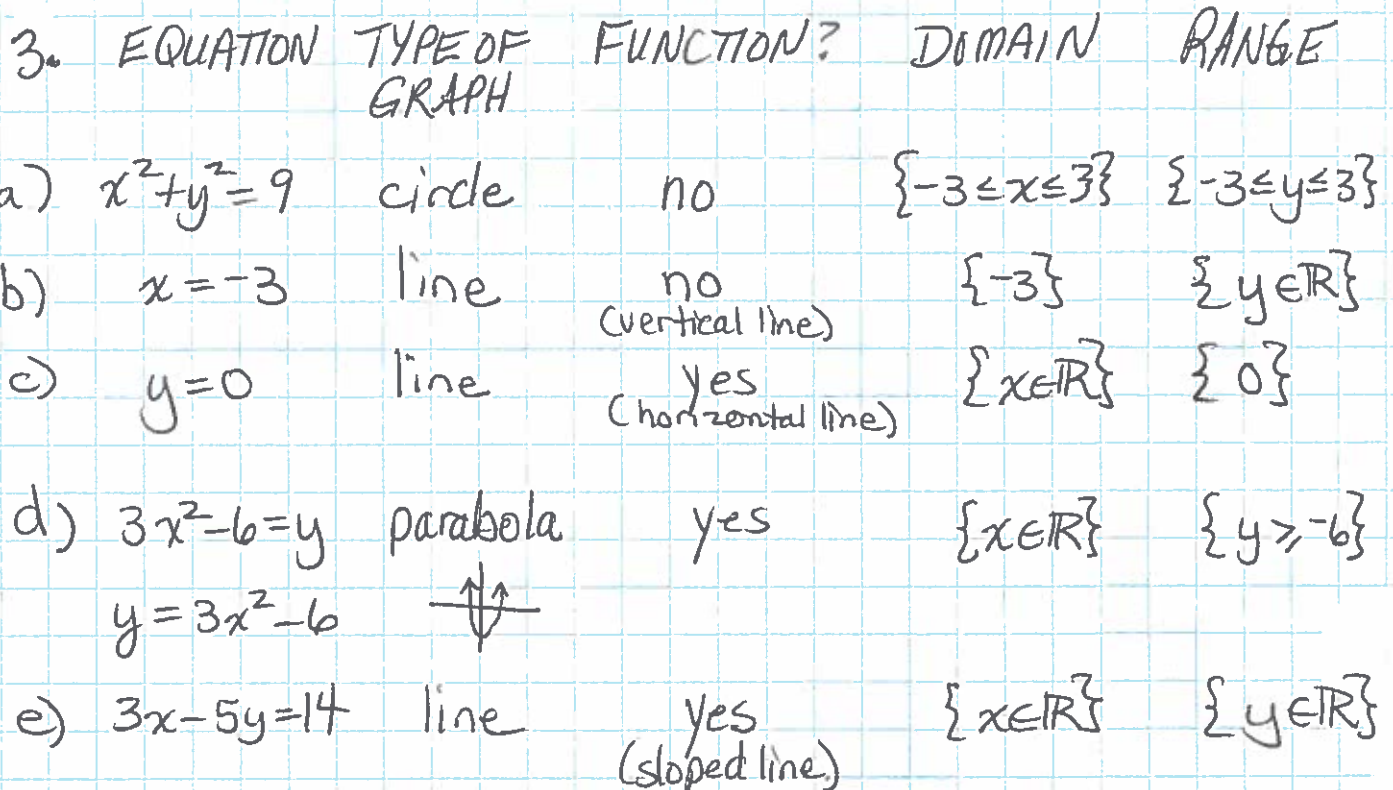 3. EQUATION TYPE OF GRAPH FUNCTION? DOMAIN RANGE
a) x²+y²=9 circle no {-3≤x≤3} {-3≤y≤3}
b) x=-3 line no (vertical line) {-3} {y∈ℝ}
c) y=0 line yes (horizontal line) {x∈ℝ} {0}
d) 3x²-6=y parabola yes {x∈ℝ} {y≥-6}
y=3x²-6
e) 3x-5y=14 line yes (sloped line) {x∈ℝ} {y∈ℝ}